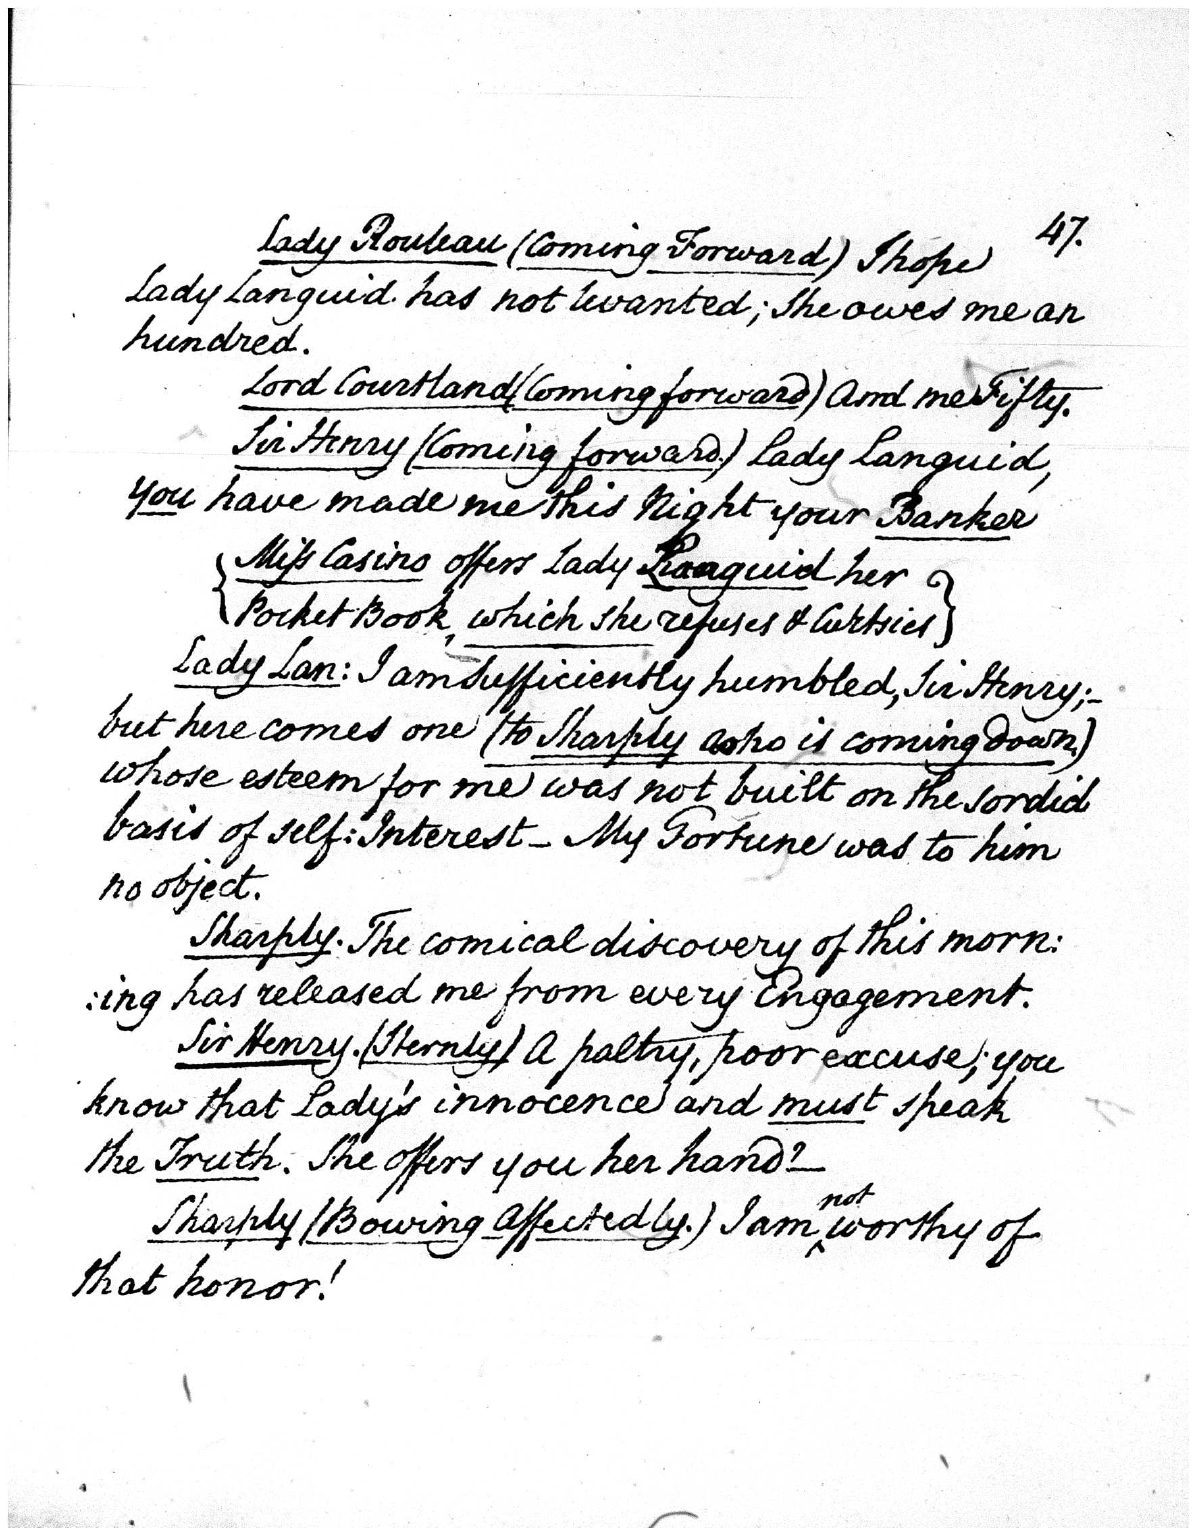 47.
Lady Rouleau (Coming Forward) I hope
Lady Languid has not levanted; She owes me an
hundred.
Lord Courtland (Coming forward) And me Fifty.
Sir Henry (Coming forward.) Lady Languid,
you have made me this Night your Banker
{Miss Casino offers Lady Languid her
Pocket Book, which she refuses & Curtsies}
Lady Lan: I am Sufficiently humbled, Sir Henry;-
but here comes one (to Sharply who is coming down)
whose esteem for me was not built on the sordid
basis of self:Interest - My Fortune was to him
no object.
Sharply. The comical discovery of this morn:
:ing has released me from every Engagement.
Sir Henry. (Sternly) A paltry, poor excuse; you
know that Lady's innocence and must speak
the Truth. She offers you her hand?-
Sharply (Bowing Affectedly.) I am not worthy of
that honor!